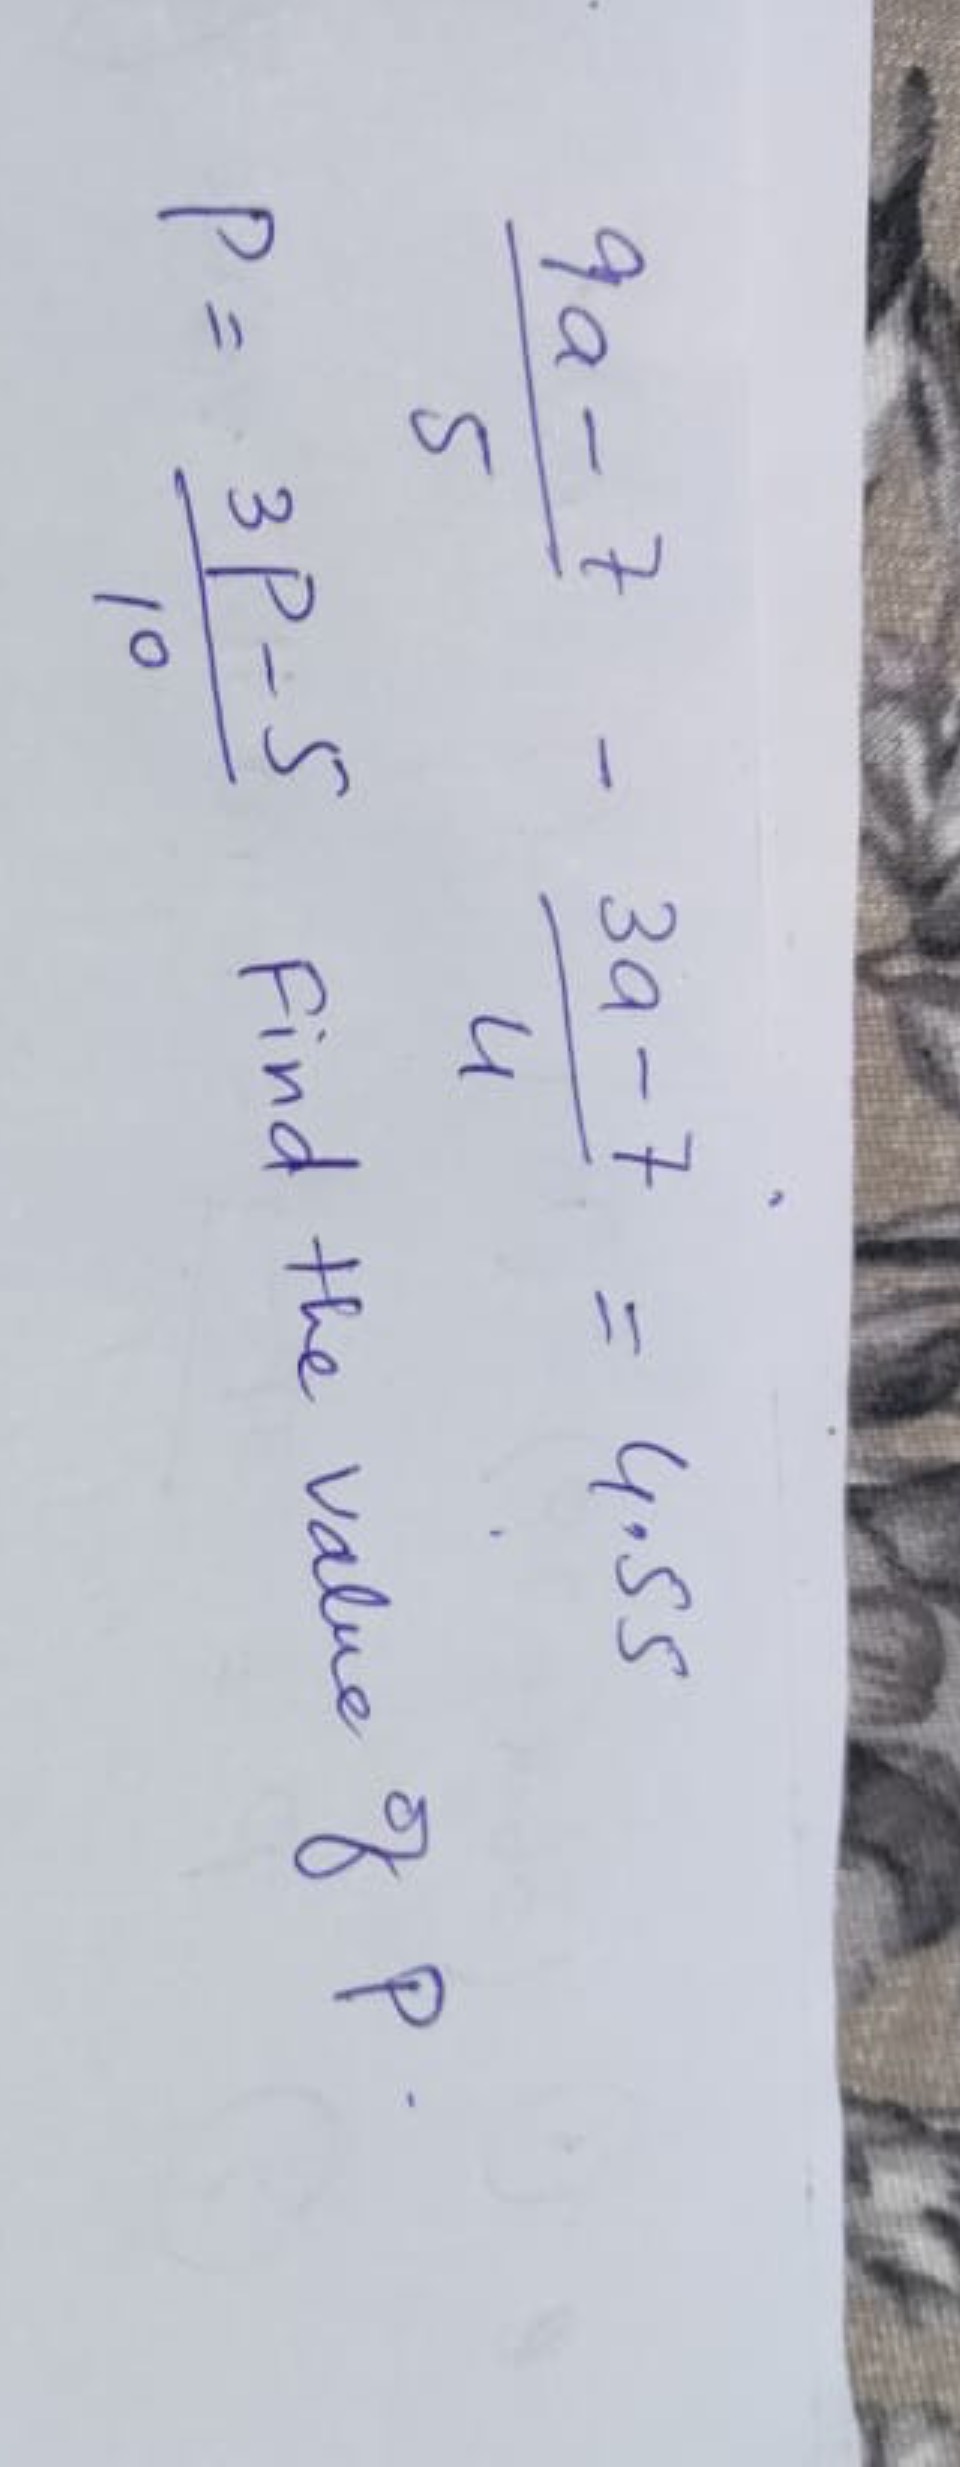 9a - 7 / 5 - 3a - 7 / 4 = 4.55
P = 3P - 5 / 10 Find the value of P.